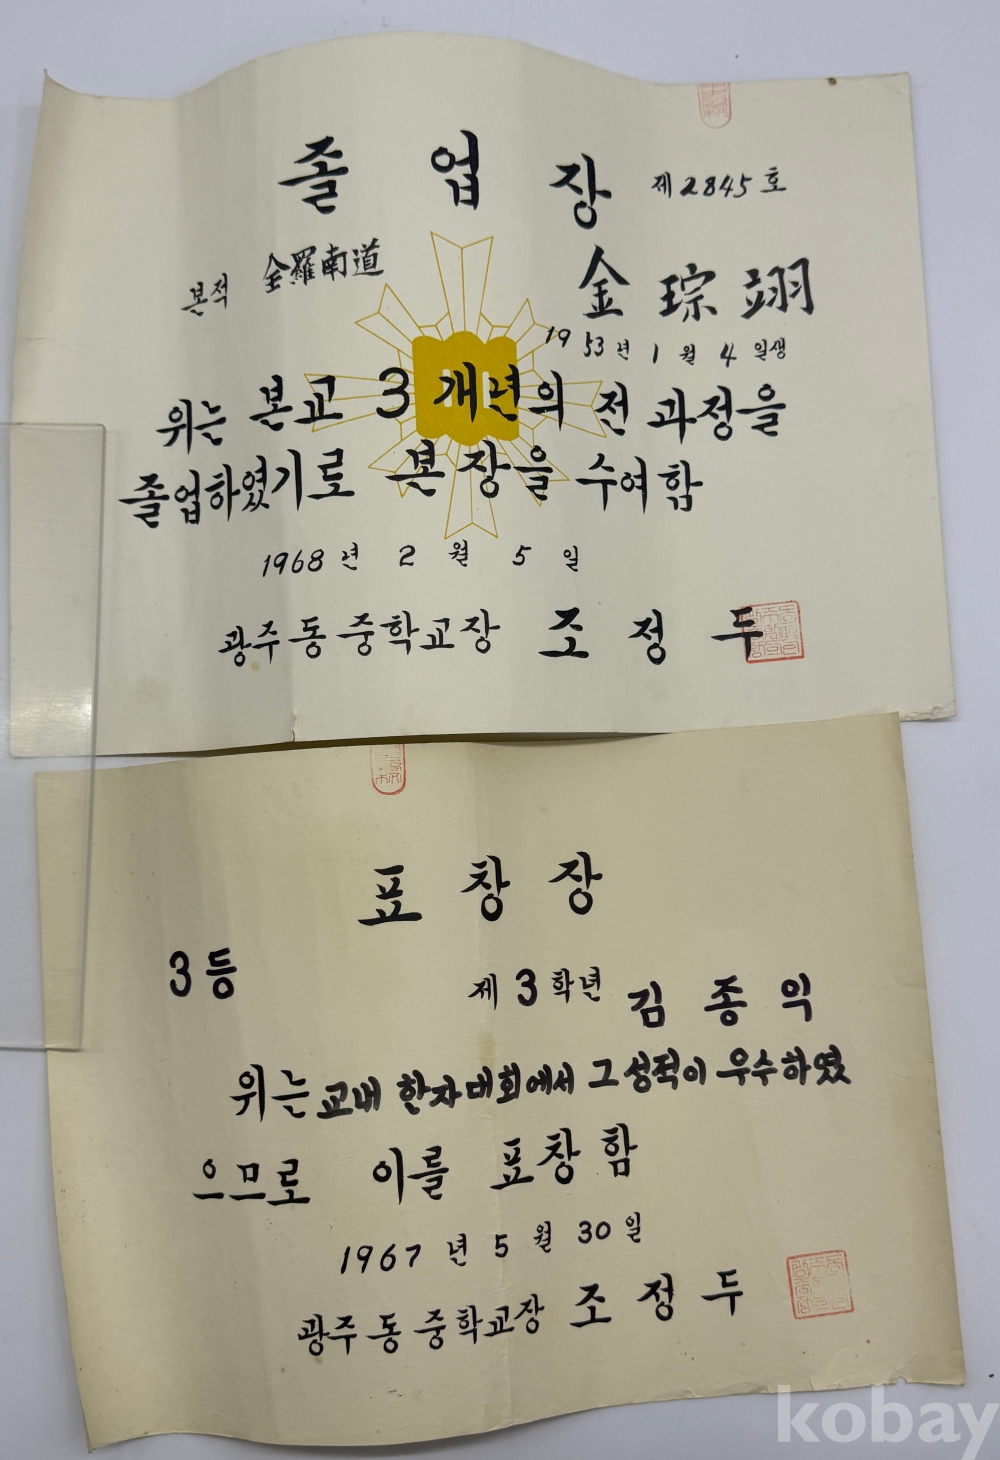 졸업장
제2845호
본적 全羅南道
金琮翊
1953년 1월 4일생
위는 본교 3개년의 전 과정을
졸업하였기로 본장을 수여함
1968년 2월 5일
광주동중학교장 조정두
표창장
3등
제3학년 김종익
위는 교내 한자대회에서 그 성적이 우수하였
으므로 이를 표창함
1967년 5월 30일
광주동중학교장 조정두
kobay